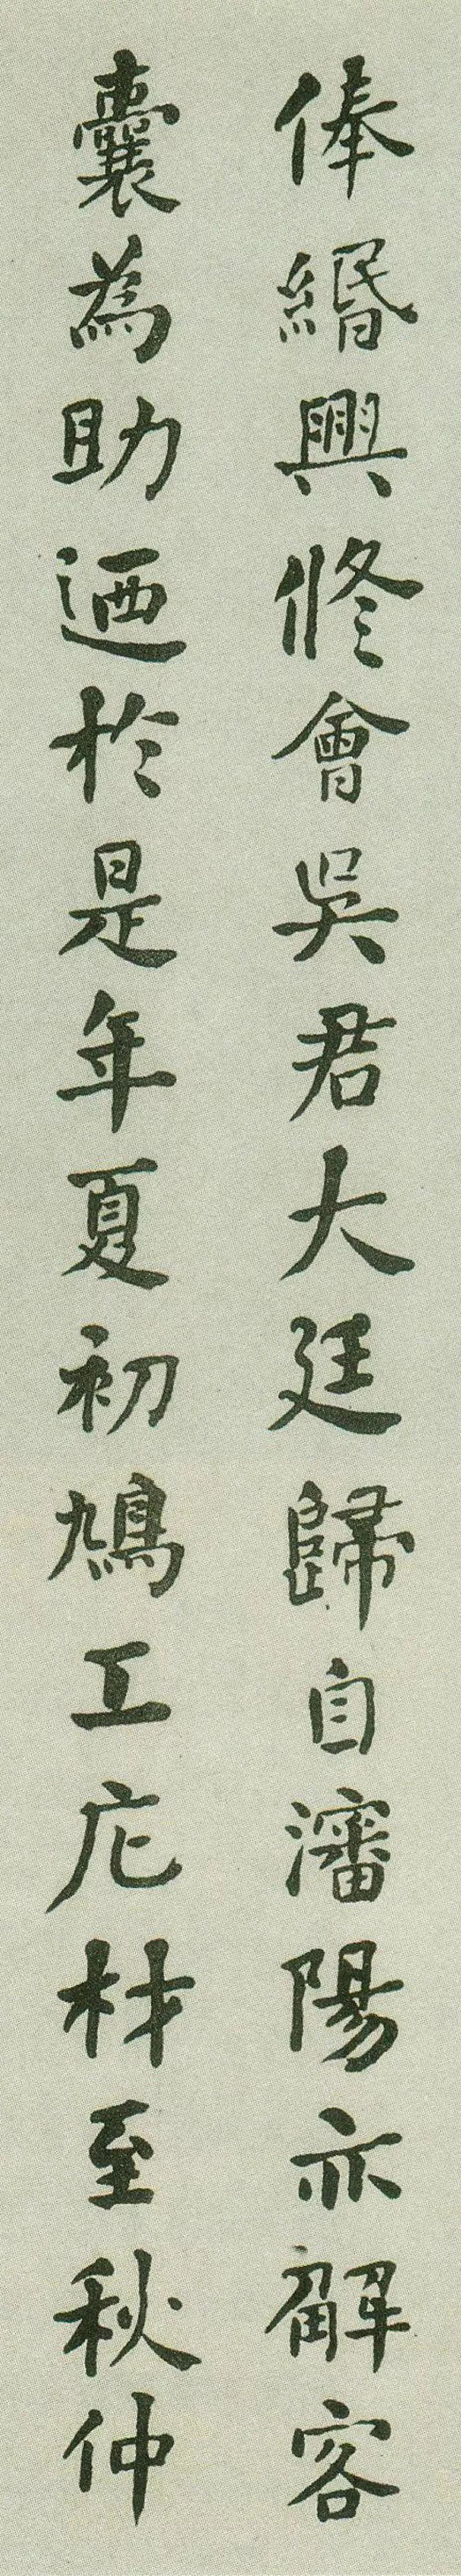 俸緡興修會吳君大廷歸自瀋陽亦解客
囊為助迺於是年夏初鳩工庀材至秋仲